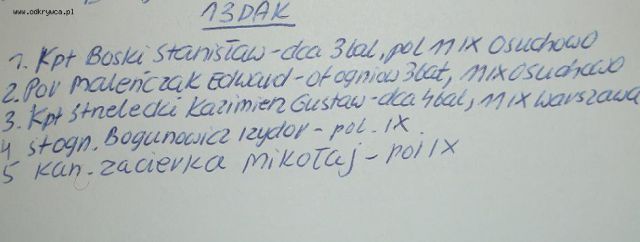 www.odkrywca.pl
13 DAK
1. Kpt Boski Stanisław - dca 3 bat, pol 11 IX Osuchowo
2. Por Maleńczak Edward - of ogniow 3 bat, 11 IX Osuchowo
3. Kpt Strelecki Kazimierz Gustaw - dca 4 bat, 11 IX Warszawa
4 st ogn. Bogunowicz Izydor - pol. IX.
5 kan. Zacierka Mikołaj - pol IX